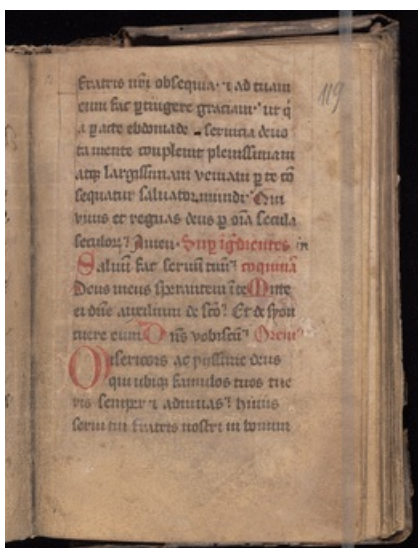 fratris nr̄i obsequia · ⁊ ad tuam
eum fac ꝑtingere graciam · ut q̇
a ꝑacte ebdomade seruicia deuo
ta mente compleuit plenissimam
atqꝫ largissimam veniam ꝑ te cō
sequatur saluator mundi · Qui
viuis et regnas deus ꝑ oīa secula
seculoꝝ Amen · Suꝑ īgrediētes in
Saluū fac seruū tuū coquina
Deus meus sperantem ī te Mitte
ei dn̄e auxilium de scō Et de syon
tuere eum Dn̄s vobiscū Orem
Misericors ac pijssime deus
qui ubiqꝫ famulos tuos tue
ris semper ⁊ adiuuas huius
serui tui fratris nostri in bonum
119